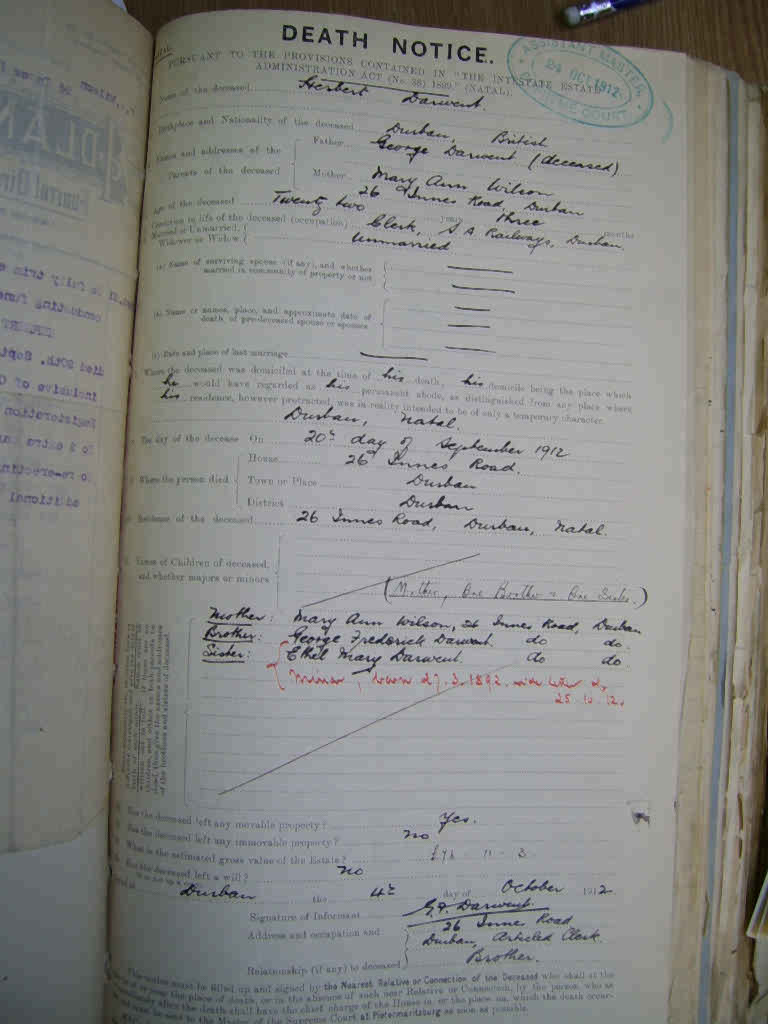 DEATH NOTICE.
ASSISTANT MASTER
24 OCT 1912
SUPREME COURT
PURSUANT TO THE PROVISIONS CONTAINED IN "THE INTESTATE ESTATE
ADMINISTRATION ACT (No. 38) 1899." (NATAL).
Name of the deceased Herbert Darwent.
Birthplace and Nationality of the deceased Durban, British
Names and addresses of the Parents of the deceased
Father George Darwent (deceased)
Mother Mary Ann Wilson
26 Innes Road, Durban
Age of the deceased Twenty two years three months
Condition in life of the deceased (occupation) Clerk, S A Railways, Durban.
Married or Unmarried, Widower or Widow Unmarried
(a) Name of surviving spouse (if any), and whether
married in community of property or not
(b) Name or names, place, and approximate date of
death of pre-deceased spouse or spouses
(c) Date and place of last marriage
Where the deceased was domiciled at the time of his death, his domicile being the place which
he would have regarded as his permanent abode, as distinguished from any place where
his residence, however protracted, was in reality intended to be only a temporary character.
Durban, Natal.
The day of the decease On 20th day of September 1912
Where the person died
House 26 Innes Road.
Town or Place Durban
District Durban
Residence of the deceased 26 Innes Road, Durban, Natal.
Names of Children of deceased,
and whether majors or minors
(Mother, One Brother & One Sister.)
Mother: Mary Ann Wilson, 26 Innes Road, Durban
Brother: George Frederick Darwent do do.
Sister: Ethel Mary Darwent. do do
Minor, born 27.3.1892. vide letter
25.10.12.
Has the deceased left any movable property? Yes.
Has the deceased left any immovable property? no
What is the estimated gross value of the Estate? 11 3
Has the deceased left a will? no
Dated at Durban the 4th day of October 1912
Signature of Informant G.F. Darwent.
Address and occupation and 26 Innes Road
Durban, Articled Clerk.
Relationship (if any) to deceased Brother.
This notice must be filled up and signed by the Nearest Relative or Connection of the Deceased who shall at the
place of death, or in the absence of such near Relative or Connection, by the person who as
immediately after the death shall have the chief charge of the House in, or the place on, which the death occur-
sent to the Master of the Supreme Court at Pietermaritzburg as soon as possible.